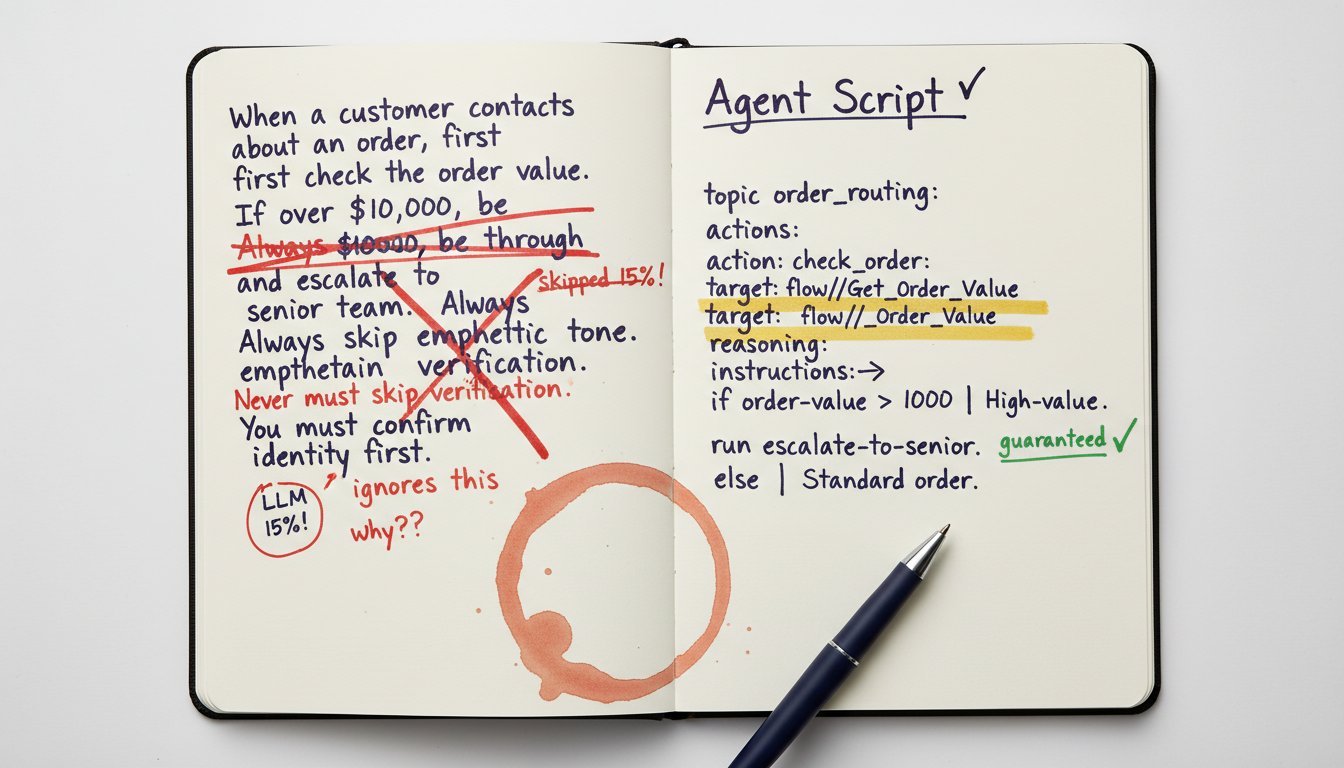 When a customer contacts
about an order, first
first check the order value.
If over $10,000, be
Always $10000, be through
and escalate to
skipped 15%!
senior team. Always
Always skip emphettic tone.
empthetain verification.
Never must skip verification.
You must confirm
identity first.
LLM
15%!
ignores this
why??
Agent Script ✓
topic order_routing:
actions:
action: check_order:
target: flow//Get_Order_Value
target: flow//_Order_Value
reasoning:
instructions:→
if order-value > 1000 | High-value.
run escalate-to-senior. guaranteed ✓
else | Standard order.